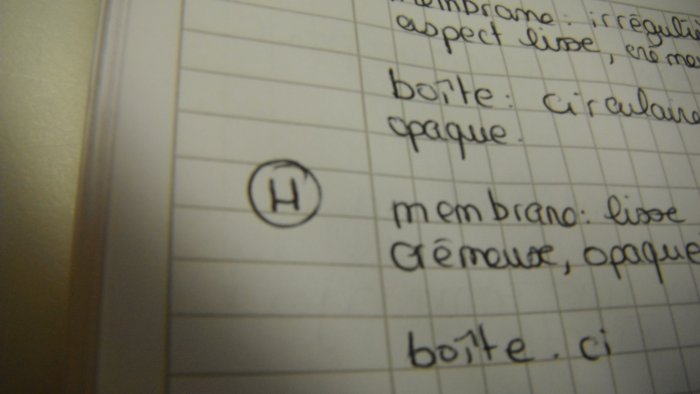 membrane: irréguliè
aspect lisse, crème
boîte: circulaire
opaque.
H
membrane: lisse
crémeuse, opaque
boîte. ci